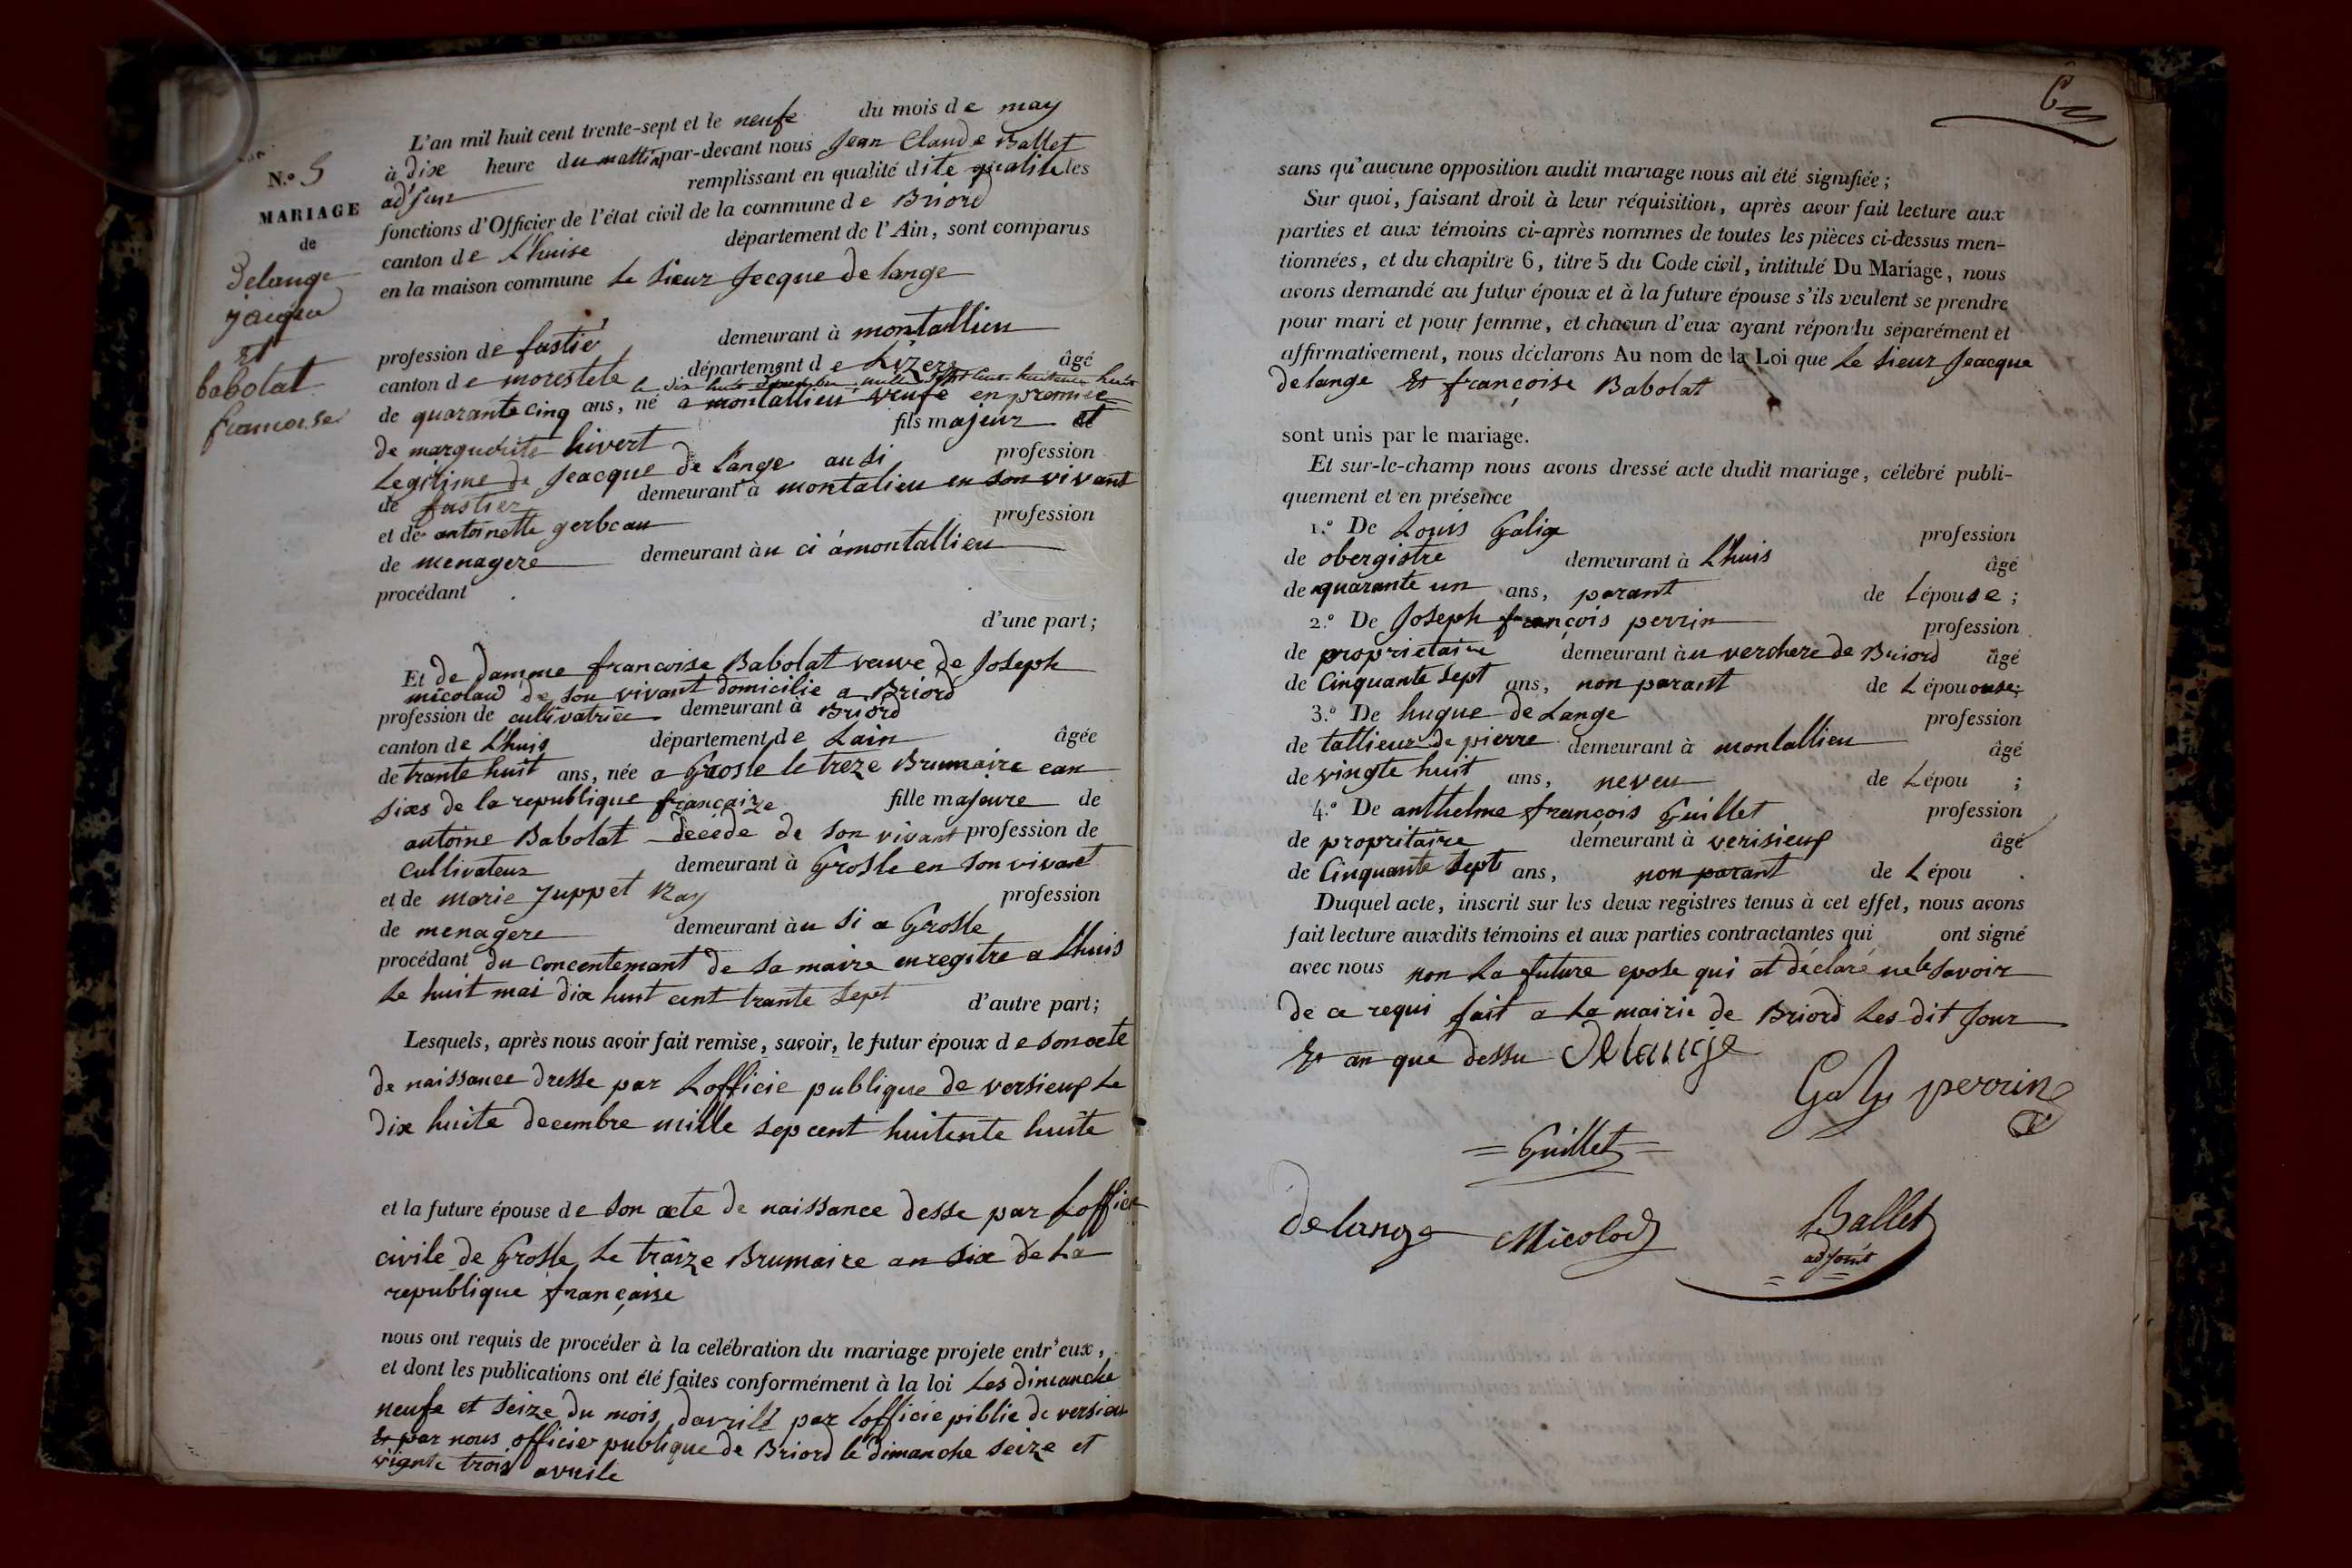 N.º 5
MARIAGE
de
Delange
jacque
Et
babolat
francoise
L'an mil huit cent trente-sept et le neufe du mois de may
à dixe heure du mattin par-devant nous Jean Claude Ballet
adjeur remplissant en qualité dite qualité les
fonctions d'Officier de l'état civil de la commune de Briord
canton de L'huise département de l'Ain, sont comparus
en la maison commune Le Sieur Jecque de lange
profession de fustié demeurant à montallieu
canton de morestele département de Lizere âgé
le dix huit decembre mille sept cent huitente huit
de quarante cinq ans, né a montallieu veufe en premiee
de marguerite hivert fils majeur et
Legitime de Jeacque de Lange ausi profession
de fustier demeurant à montalieu en son vivant
et de antoinette gerbeau profession
de menagere demeurant àu ci àmontallieu
procédant
d'une part;
Et de damme francoise Babolat veuve de Joseph
micolaud de son vivant domicilie a Briord
profession de cultivatrice demeurant à Briord
canton de L'huis département de Lain âgée
de trante huit ans, née a Grosle le treze Brumaire ean
sixs de la republique françaize fille majeure de
antoine Babolat decede de son vivant profession de
Cullivateur demeurant à Grosle en son vivant
et de marie juppet Ray profession
de menagere demeurant àu si a Grosle
procédant du Concentemant de sa maire enregitre a L'huis
Le huit mai dix huit cent trante sept d'autre part;
Lesquels, après nous avoir fait remise, savoir, le futur époux de son acte
de naissance dresse par Lofficie publique de versieux Le
dix huite decembre mille sepcent huitente huite
et la future épouse de son acte de naissance desse par Loffice
civile de Grosle Le traize Brumaire an six de La
republique française
nous ont requis de procéder à la célébration du mariage projeté entr'eux,
et dont les publications ont été faites conformément à la loi Les dimanche
neufe et seize du mois davrile par lofficie piblic de versieu
Et par nous officier publique de Briord le dimanche seize et
vignte trois avrile
sans qu'aucune opposition audit mariage nous ait été signifiée;
Sur quoi, faisant droit à leur réquisition, après avoir fait lecture aux
parties et aux témoins ci-après nommés de toutes les pièces ci-dessus men-
tionnées, et du chapitre 6, titre 5 du Code civil, intitulé Du Mariage, nous
avons demandé au futur époux et à la future épouse s'ils veulent se prendre
pour mari et pour femme, et chacun d'eux ayant répondu séparément et
affirmativement, nous déclarons Au nom de la Loi que Le sieur Jeacque
delange Et françoise Babolat
sont unis par le mariage.
Et sur-le-champ nous avons dressé acte dudit mariage, célébré publi-
quement et en présence
1.º De Louis Galix profession
de obergistre demeurant à L'huis âgé
de quarante un ans, parant de Lépouse;
2.º De Joseph françois perrin profession
de proprietaire demeurant àu verchere de Briord âgé
de Cinquante sept ans, non parant de Lépououse;
3.º De hugue de Lange profession
de tallieur de pierre demeurant à montallieu âgé
de vingte huit ans, neveu de Lépou ;
4.º De anthelme françois Guillet profession
de propritaire demeurant à verisieux âgé
de Cinquante sept ans, non parant de Lépou .
Duquel acte, inscrit sur les deux registres tenus à cet effet, nous avons
fait lecture auxdits témoins et aux parties contractantes qui ont signé
avec nous non La future epose qui at déclaré ne le savoir
de ce requi fait a La mairie de Briord Les dit Jour
Et an que dessu Delange
Galy perrin
Guillet
delange Micolod Ballet
adjoint